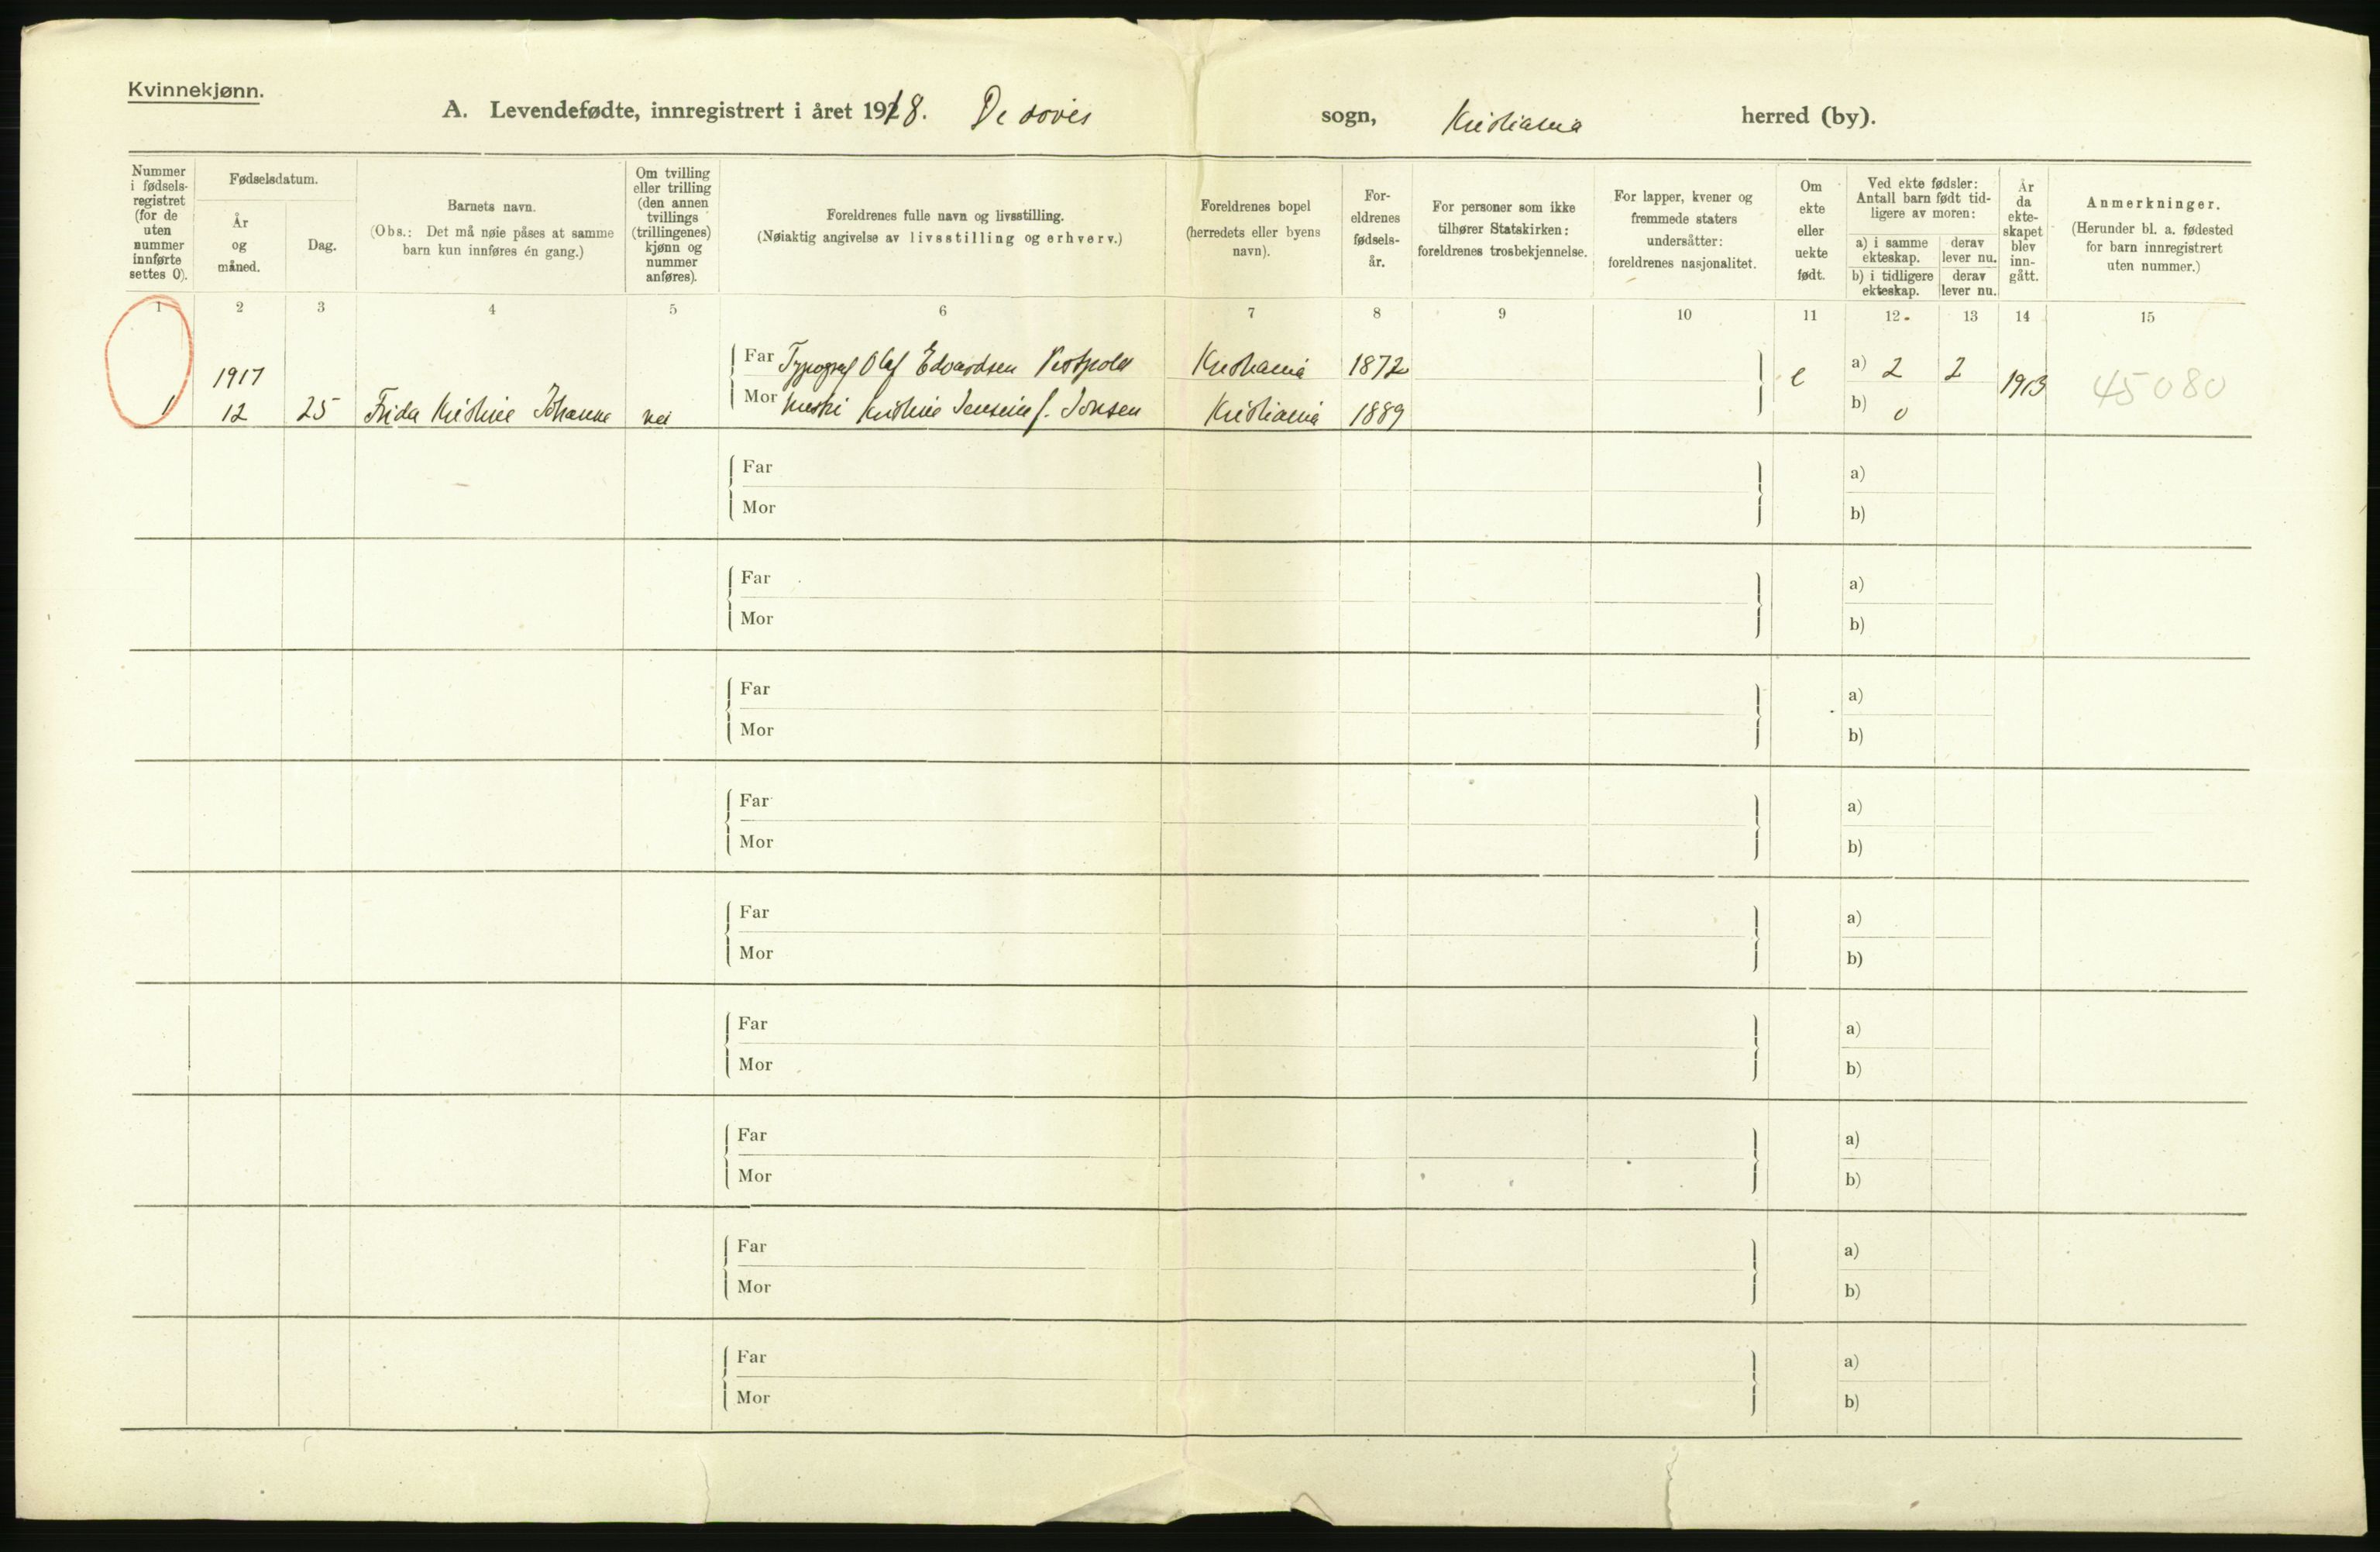 Kvinnekjønn.
A. Levendefødte, innregistrert i året 1918. De døves sogn, Kristiania herred (by).
Nummer i fødselsregistret (for de uten nummer innførte settes 0).
Fødselsdatum.
År og måned.
Dag.
Barnets navn.
(Obs.: Det må nøie påses at samme barn kun innføres én gang.)
Om tvilling eller trilling (den annen tvillings (trillingenes) kjønn og nummer anføres).
Foreldrenes fulle navn og livsstilling.
(Nøiaktig angivelse av livsstilling og erhverv.)
Foreldrenes bopel (herredets eller byens navn).
Foreldrenes fødselsår.
For personer som ikke tilhører Statskirken: foreldrenes trosbekjennelse.
For lapper, kvener og fremmede staters undersåtter: foreldrenes nasjonalitet.
Om ekte eller uekte født.
Ved ekte fødsler: Antall barn født tidligere av moren:
a) i samme ekteskap. derav lever nu.
b) i tidligere ekteskap. derav lever nu.
År da ekteskapet blev inngått.
Anmerkninger.
(Herunder bl. a. fødested for barn innregistrert uten nummer.)
1 2 3 4 5 6 7 8 9 10 11 12 13 14 15
1917 Far Typograf Olaf Edvardsen Kristiania 1872 e a) 2 2 1913 45080
1 12 25 Frida Kristine Johanne nei Mor Kristine f. Jonsen Kristiania 1889 b) 0
Far a)
Mor b)
Far a)
Mor b)
Far a)
Mor b)
Far a)
Mor b)
Far a)
Mor b)
Far a)
Mor b)
Far a)
Mor b)
Far a)
Mor b)
Far a)
Mor b)